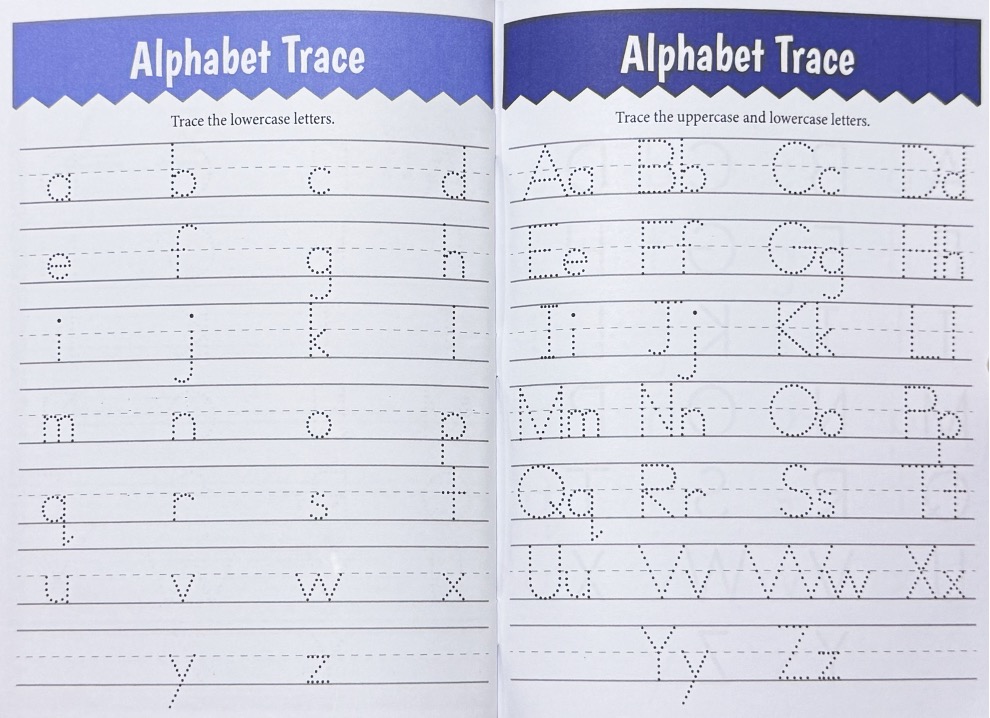 Alphabet Trace
Trace the lowercase letters.
a b c d
e f g h
i j k l
m n o p
q r s t
u v w x
y z
Alphabet Trace
Trace the uppercase and lowercase letters.
Aa Bb Cc Dd
Ee Ff Gg Hh
Ii Jj Kk Ll
Mm Nn Oo Pp
Qq Rr Ss Tt
Uu Vv Ww Xx
Yy Zz